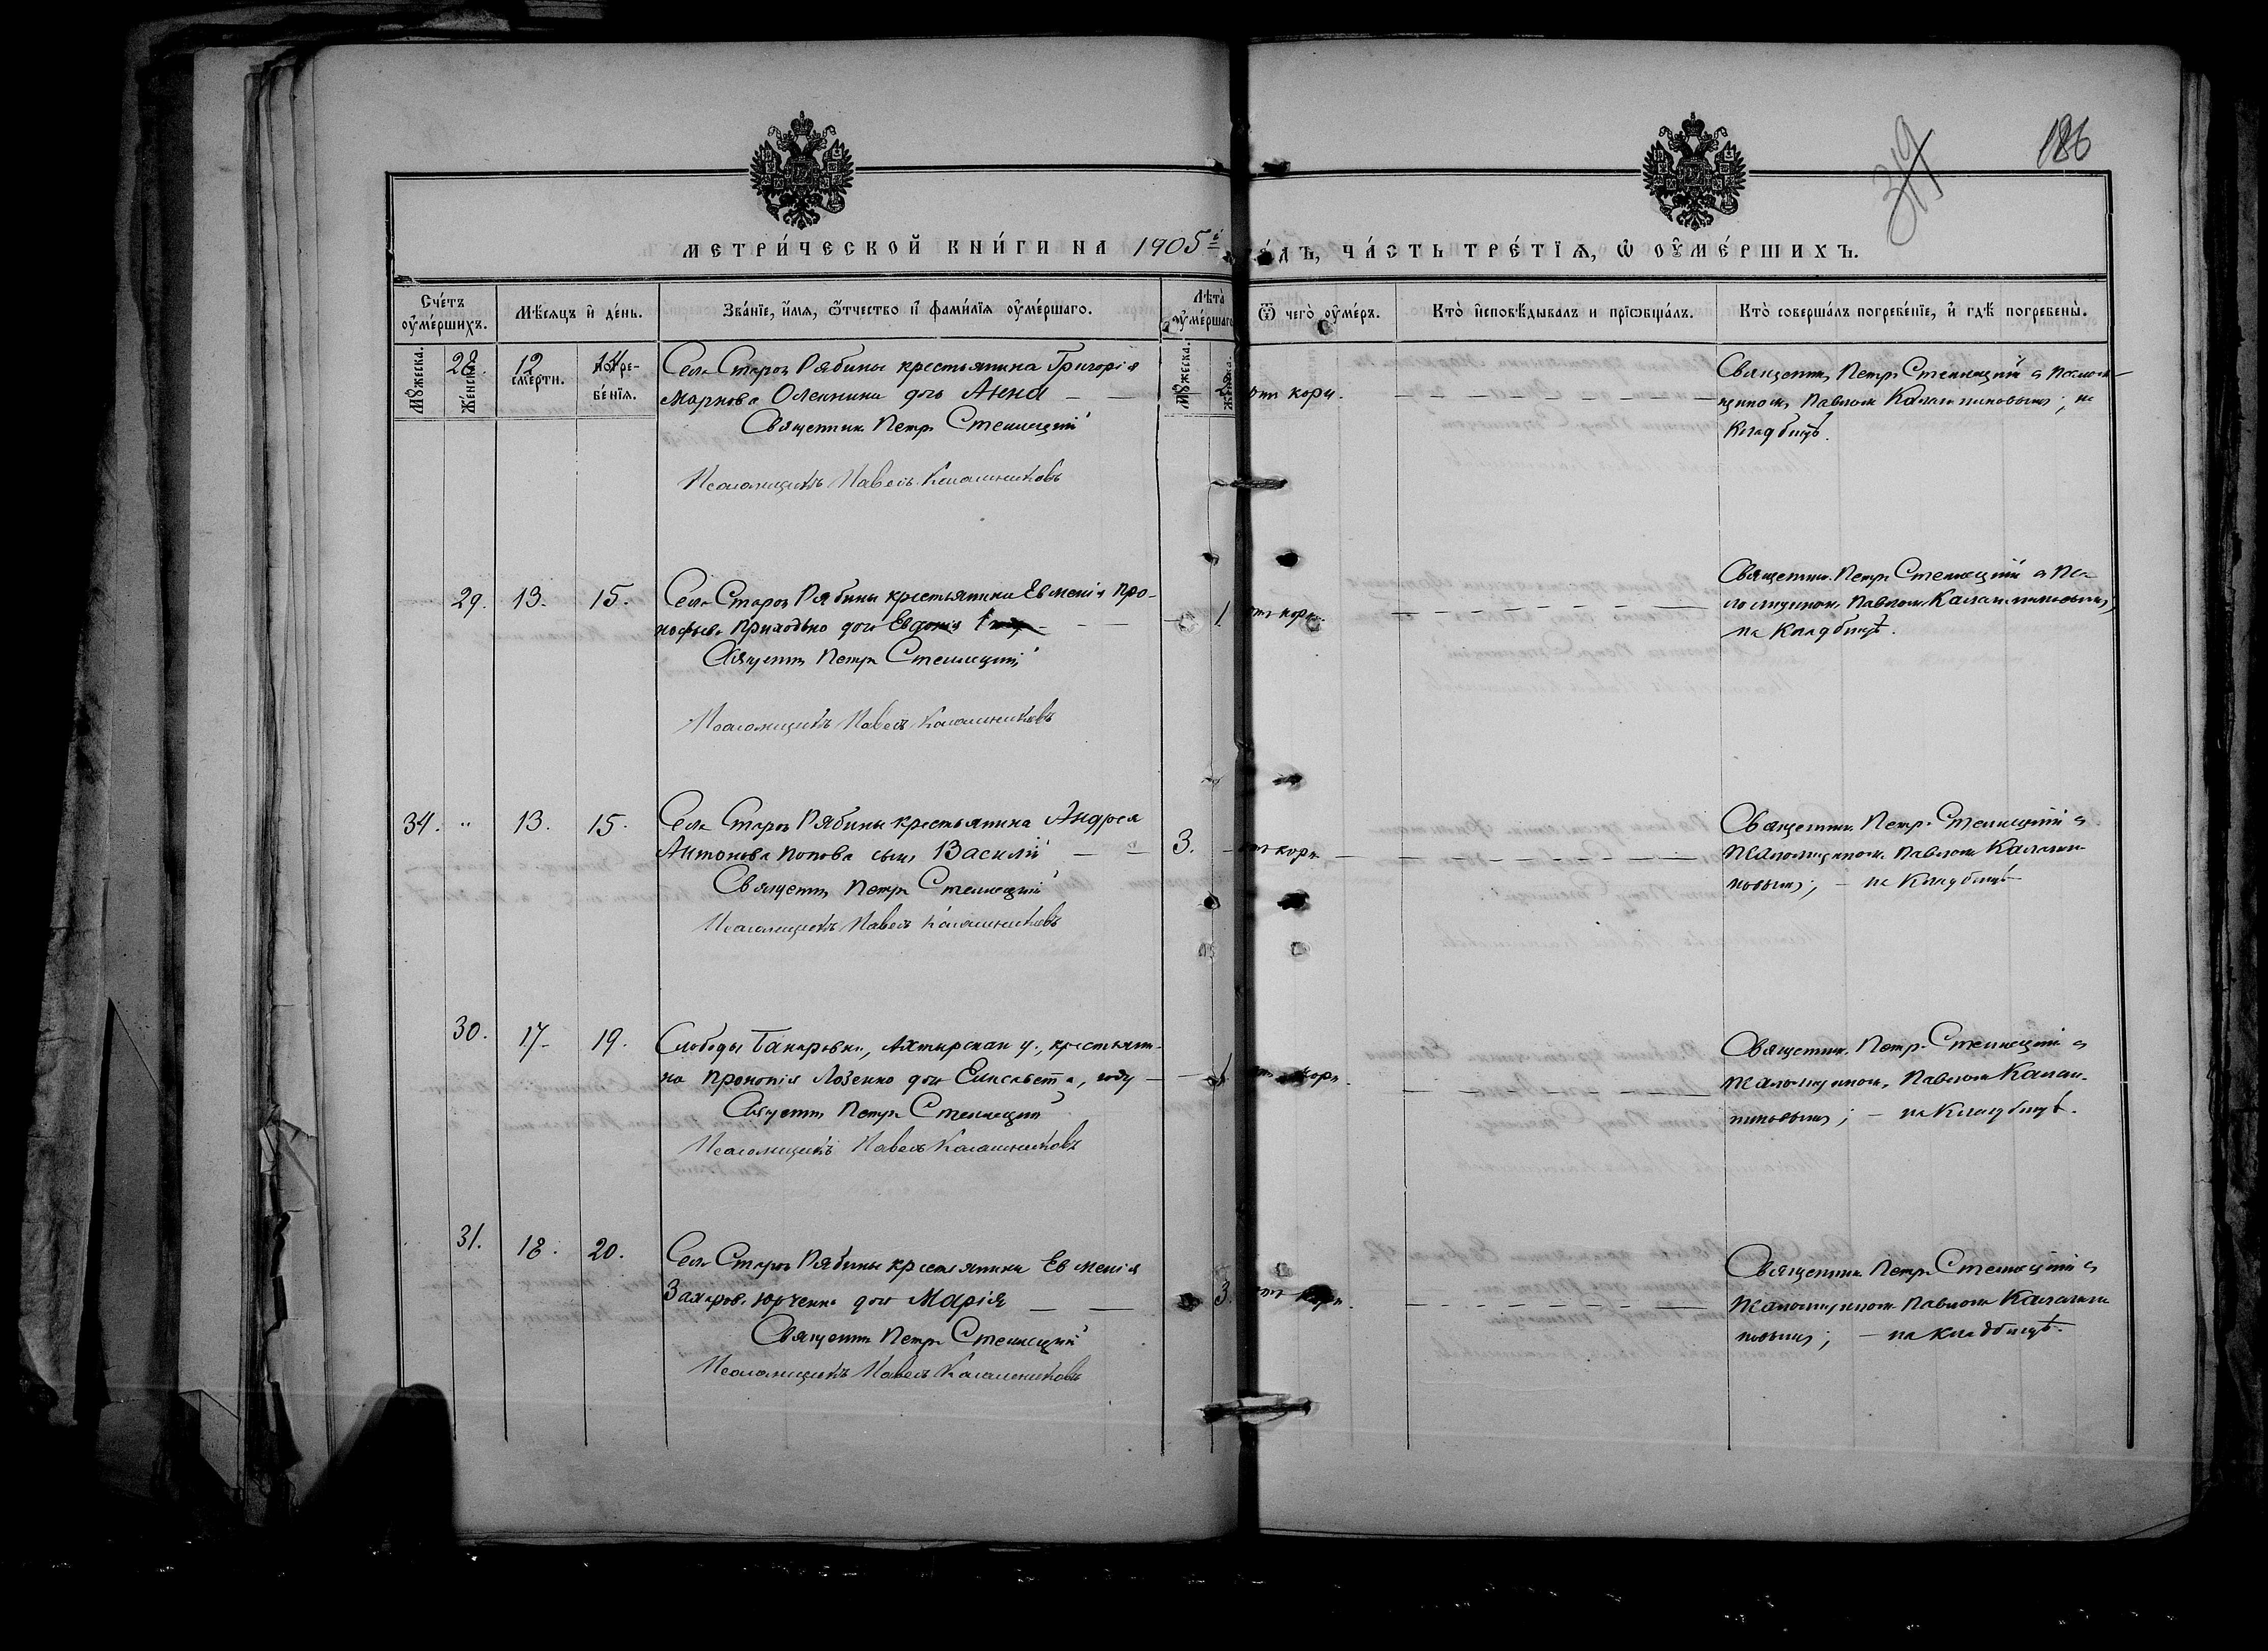 319
186
МЕТРИ́ЧЕСКОЙ КНИ́ГИ НА 1905й го́дъ, ЧА́СТЬ ТРЕ́ТІѦ, Ѡ ОУМЕ́РШИХЪ.
Сче́тъ оумершихъ.
Мѣ́сяцъ и де́нь.
Зва́нїе, и́мѧ, ѻ́тчество и фамилїѧ оуме́ршаго.
Лѣ́та оуме́ршаго
Ѿ чегѡ̀ оу́меръ.
Кто̀ исповѣ́дывалъ и прїѡбща́лъ.
Кто̀ соверша́лъ погребе́нїе, и гдѣ̀ погребены̀.
Мꙋжеска.
Же́нска.
сме́рти.
погре-
бе́нїя.
Мꙋжеска.
Же́нска.
28. 12 14 Села Старой Рябины крестьянина Григорія
Маркова Олейника дочь Анна — отъ кори.
Священникъ Петръ Стеллецкій
Псаломщикъ Павелъ Калашниковъ
Священникъ Петръ Стеллецкій съ псалом-
щикомъ Павломъ Калашниковымъ; на
кладбищѣ.
29. 13. 15. Села Старой Рябины крестьянина Евменія Про-
кофьева Приходько дочь Евдокія — 1. отъ кори.
Священникъ Петръ Стеллецкій
Псаломщикъ Павелъ Калашниковъ
Священникъ Петръ Стеллецкій съ пса-
ломщикомъ Павломъ Калашниковымъ;
на кладбищѣ.
34. " 13. 15. Села Старой Рябины крестьянина Андрея
Антонова Попова сынъ Василій — 3. — отъ кори
Священникъ Петръ Стеллецкій
Псаломщикъ Павелъ Калашниковъ
Священникъ Петръ Стеллецкій съ
псаломщикомъ Павломъ Калашни-
ковымъ; — на кладбищѣ
30. 17. 19. Слободы Бакировки, Ахтырскаго у., крестьяни-
на Прокопія Лозенко дочь Елисавета, году — 1 отъ кори.
Священникъ Петръ Стеллецкій
Псаломщикъ Павелъ Калашниковъ
Священникъ Петръ Стеллецкій съ
псаломщикомъ Павломъ Калаш-
никовымъ; — на кладбищѣ.
31. 18. 20. Села Старой Рябины крестьянина Евменія
Захарова Юрченко дочь Марія — 3. отъ кори.
Священникъ Петръ Стеллецкій
Псаломщикъ Павелъ Калашниковъ
Священникъ Петръ Стеллецкій съ
псаломщикомъ Павломъ Калашни-
ковымъ; — на кладбищѣ.